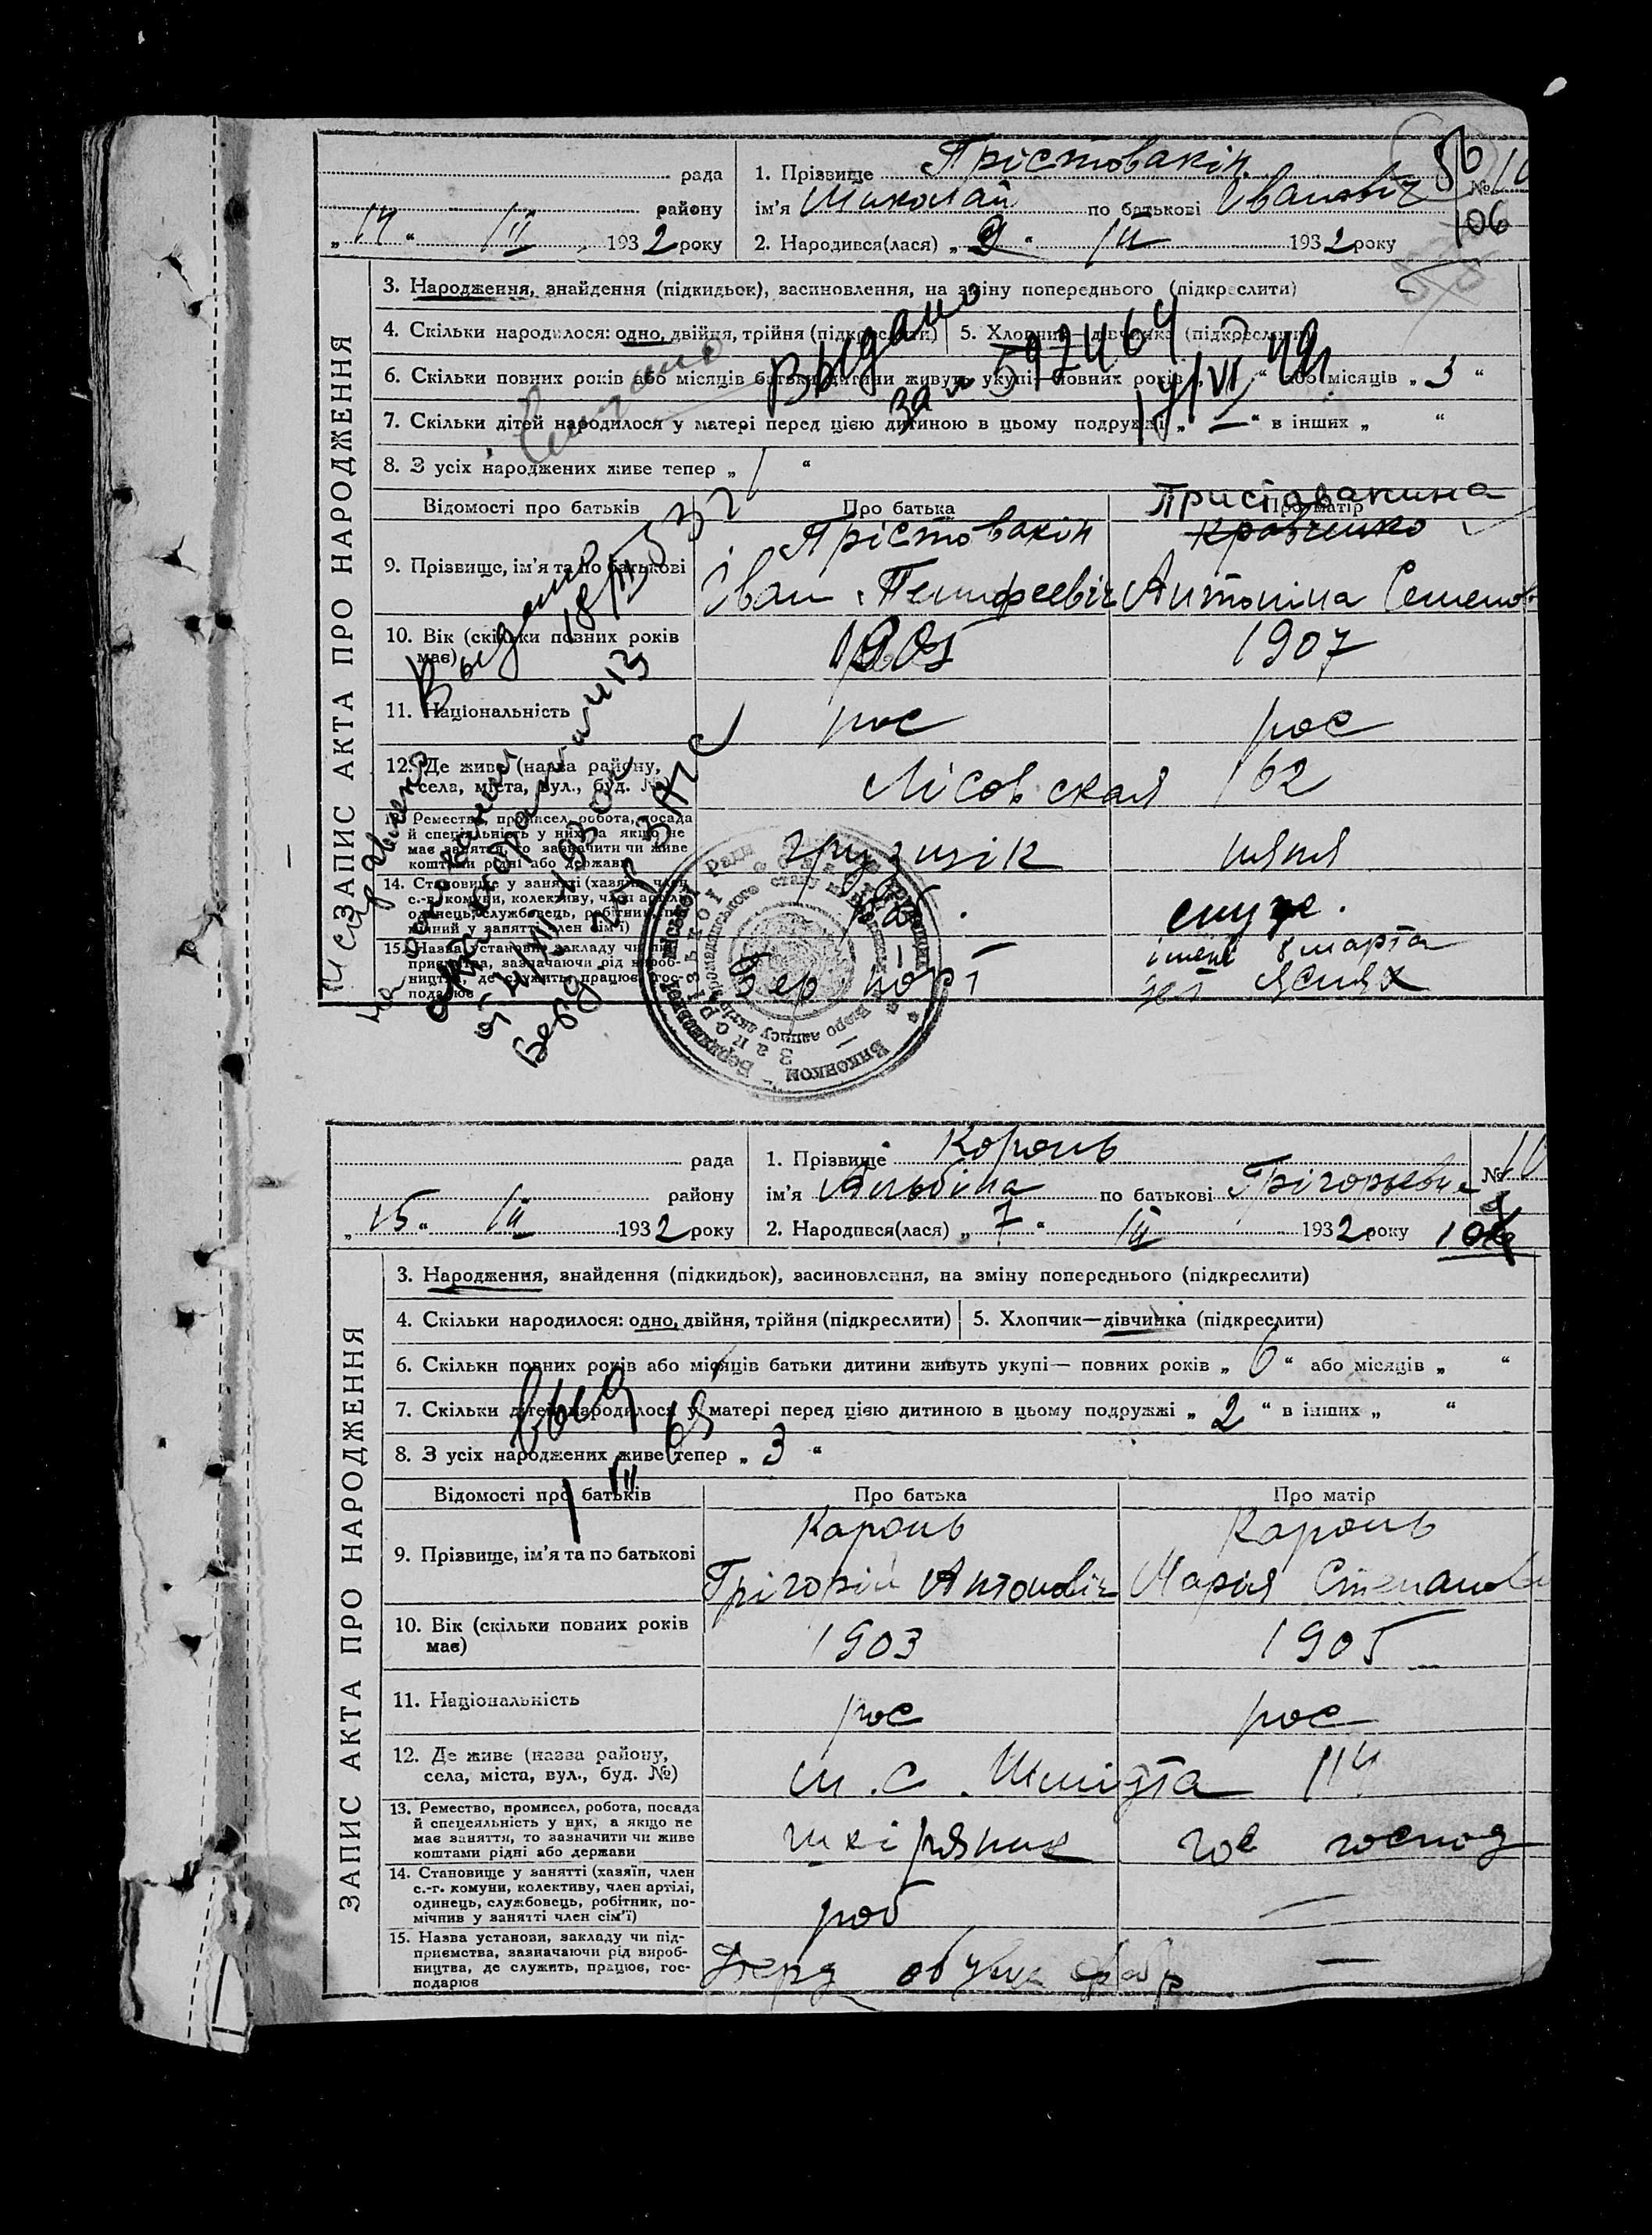 рада
1. Прізвище Прістовакін
№ 10
району
ім'я Миколай по батькові Іванович
106
„ 14 “ III 1932 року
2. Народився(лася) „ 2 “ III 1932 року
ЗАПИС АКТА ПРО НАРОДЖЕННЯ
3. Народження, знайдення (підкидьок), васиновлення, на зміну попереднього (підкреслити)
4. Скільки народилося: одно, двійня, трійня (підкреслити)
5. Хлопчик—дівчинка (підкреслити)
6. Скільки повних років або місяців батьки дитини живуть укупі— повних років „ “ або місяців „ 3 “
7. Скільки дітей народилося у матері перед цією дитиною в цьому подружжі „ — “ в інших „ “
8. З усіх народжених живе тепер „ 1 “
Выдано
за № 597464
Відомості про батьків
Про батька
Про матір
Приставакина
9. Прізвище, ім'я та по батькові
Прістовакін
Кравченко
Іван Тимофеевіч
Антоніна Семенов
10. Вік (скільки повних років має)
1905
1907
11. Національність
рос
рос
12. Де живе (назва району, села, міста, вул., буд. №)
Лісовская 62
13. Ремество, промисел, робота, посада й спеціяльність у них, а якщо не має заняття, то зазначити чи живе коштами рідні або держави
грузчік
няня
14. Становище у занятті (хазяїн, член с.-г. комуни, колективу, член артілі, одинець, службовець, робітник, помічний у занятті член сім'ї)
роб.
служ.
15. Назва установи, закладу чи підприємства, зазначаючи рід виробництва, де служить, працює, господарює
Бер порт
імені 8 марта
дет ясля
Выдано
18/III 32
Исправлено
на основании
рада
1. Прізвище Король
№ 10
району
ім'я Альбіна по батькові Грігорьевна
„ 15 “ III 1932 року
2. Народився(лася) „ 7 “ III 1932 року
ЗАПИС АКТА ПРО НАРОДЖЕННЯ
3. Народження, знайдення (підкидьок), васиновлення, на зміну попереднього (підкреслити)
4. Скільки народилося: одно, двійня, трійня (підкреслити)
5. Хлопчик—дівчинка (підкреслити)
6. Скільки повних років або місяців батьки дитини живуть укупі— повних років „ 6 “ або місяців „ “
7. Скільки дітей народилося у матері перед цією дитиною в цьому подружжі „ 2 “ в інших „ “
8. З усіх народжених живе тепер „ 3 “
Відомості про батьків
Про батька
Про матір
9. Прізвище, ім'я та по батькові
Кароль
Кароль
Грігорій Антоновіч
Марія Степанов
10. Вік (скільки повних років має)
1903
1905
11. Національність
рос
рос
12. Де живе (назва району, села, міста, вул., буд. №)
Шмідта
13. Ремество, промисел, робота, посада й спецеяльність у них, а якщо не має заняття, то зазначити чи живе коштами рідні або держави
шкіряник
господ
14. Становище у занятті (хазяїн, член с.-г. комуни, колективу, член артілі, одинець, службовець, робітник, помічнив у занятті член сім'ї)
роб
—
15. Назва установи, закладу чи підприємства, зазначаючи рід виробництва, де служить, працює, господарює
Держ обувна фабр
—